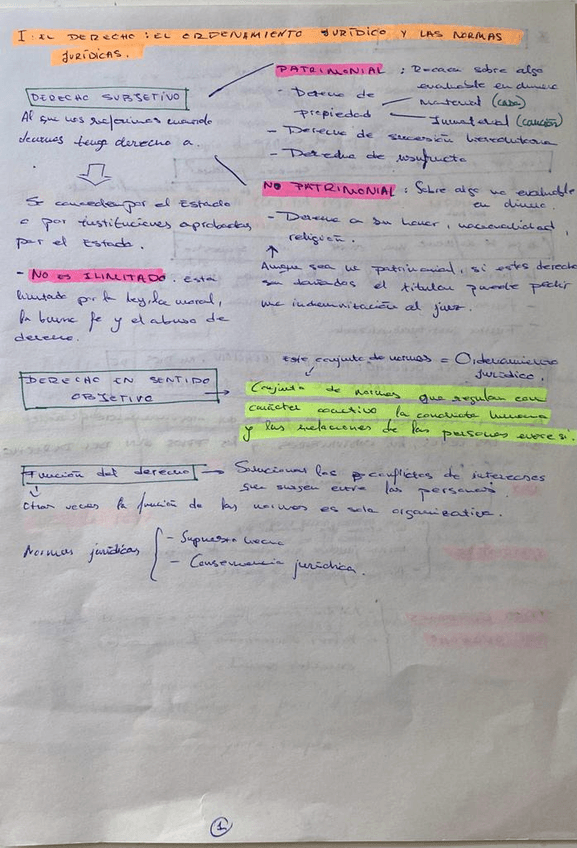 I. EL DERECHO: EL ORDENAMIENTO JURÍDICO Y LAS NORMAS
JURÍDICAS.
DERECHO SUBJETIVO
Al que nos referimos cuando
decimos tengo derecho a.
Se conceden por el Estado
o por instituciones aprobadas
por el Estado.
- NO ES ILIMITADO. está
limitado por la ley, la moral,
la buena fe y el abuso de
derecho.
PATRIMONIAL: Recaen sobre algo
evaluable en dinero
- Derecho de
propiedad
Material (casa)
Inmaterial (canción)
- Derecho de sucesión hereditaria
- Derecho de usufructo
NO PATRIMONIAL: Sobre algo no evaluable
en dinero
- Derecho a su honor, nacionalidad,
religión.
Aunque sea no patrimonial, si este derecho
son dañados el titular puede pedir
una indemnización al juez.
Este conjunto de normas = Ordenamiento
jurídico.
DERECHO EN SENTIDO
OBJETIVO
Conjunto de normas que regulan con
carácter coactivo la conducta humana
y las relaciones de las personas entre sí.
Función del derecho → Solucionar los conflictos de intereses
que surgen entre las personas
Otras veces la función de las normas es solo organizativa.
Normas jurídicas
- Supuesto hecho
- Consecuencia jurídica.
1